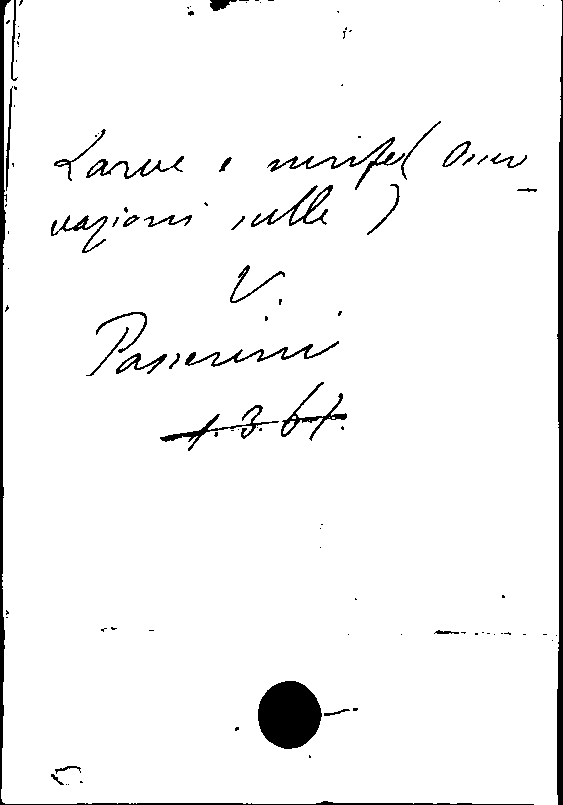 Larve e ninfe (Osser-
vazioni sulle)
V.
Passerini
1.3.61.